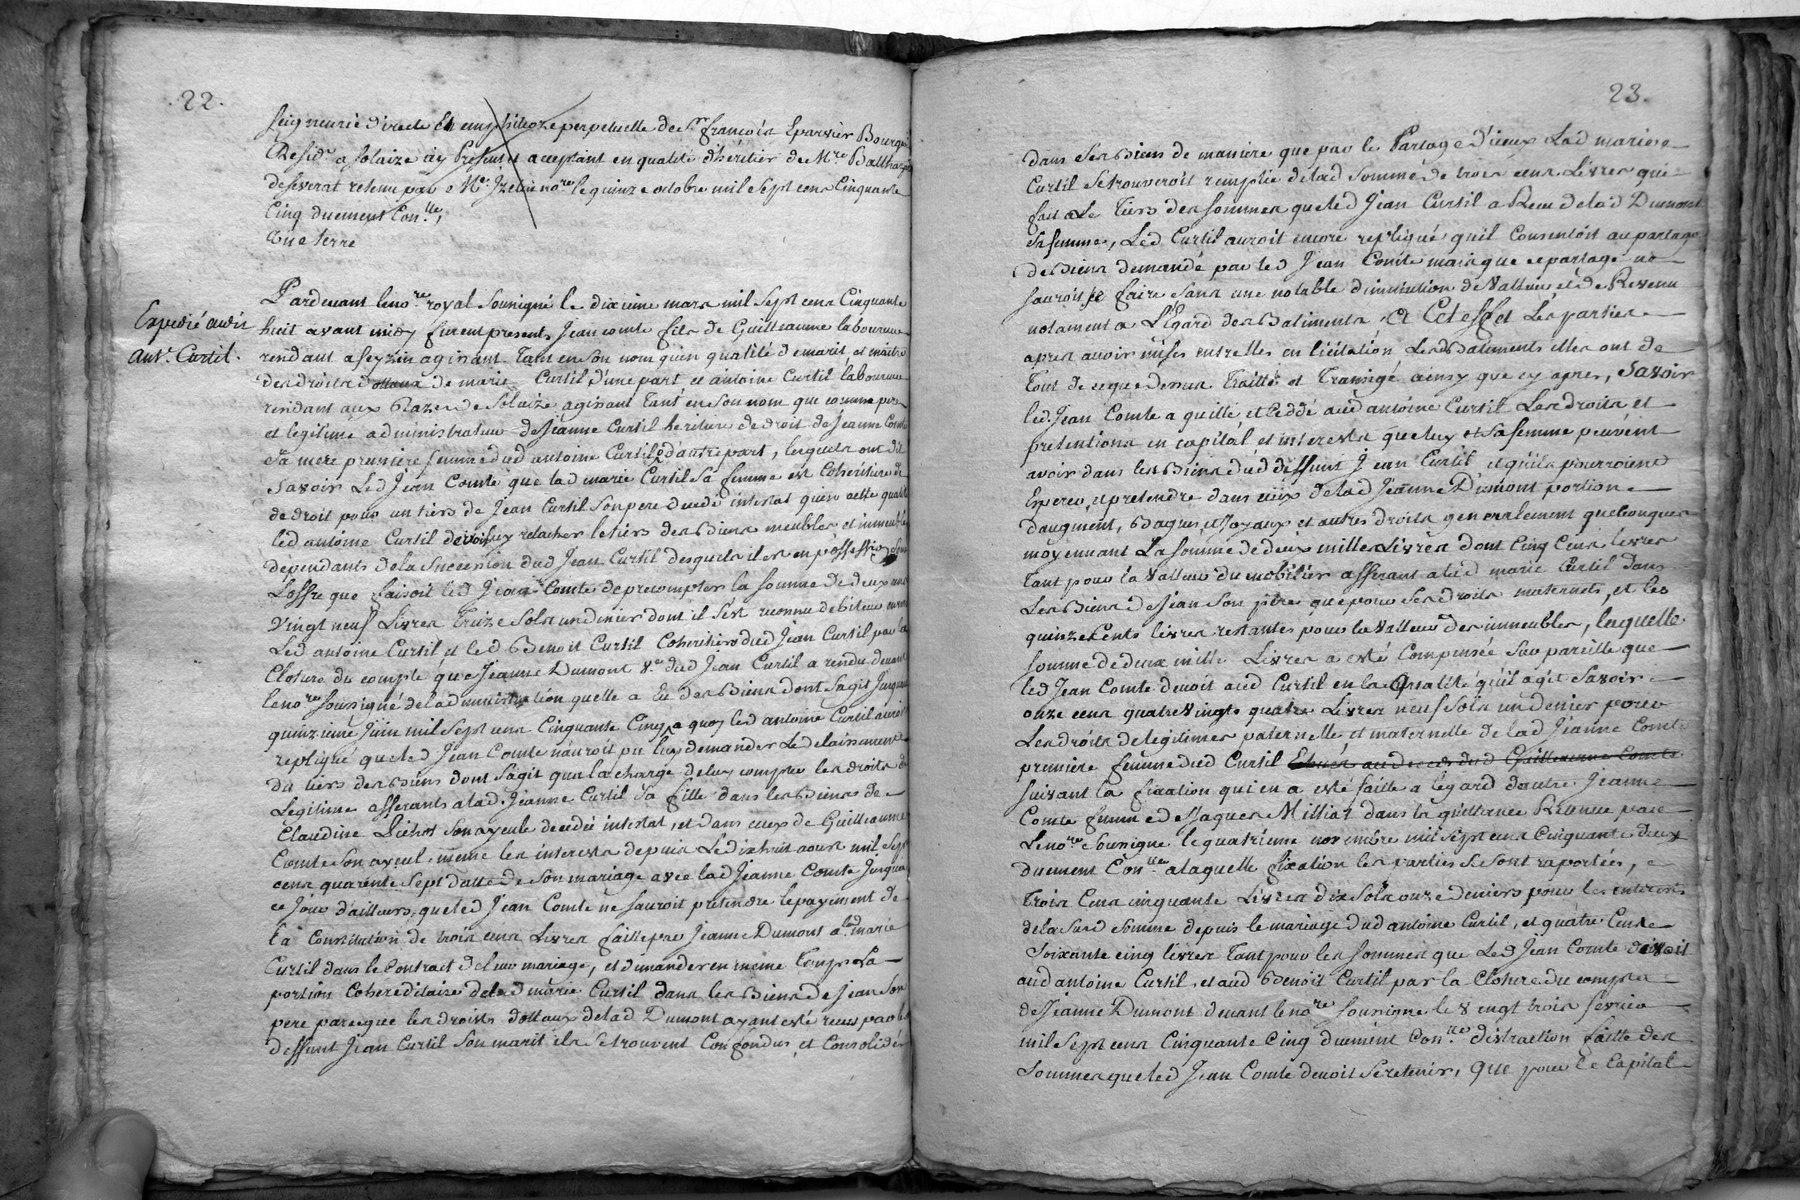 .22.
seigneurie directe et emphiteoze perpetuelle de Sr françois Eparvier Bourgeois
Resid.t a solaize icy present et acceptant en qualité d'héritier de Mre Balthazard
deseverat retenu par e Me Izerable nore le quinze octobre mil sept cens cinquante
cinq duement Con.lle,
Une terre
Pardevant le nore royal soussigné le dixieme mars mil sept cens cinquante
Expedié audit
Ant.e Curtil.
huit avant midy furent presents Jean comte fils de Guillaume laboureur
residant a seyzin agissant tant en son nom qu'en qualité de marit et maitre
des droits dottaux de marie Curtil d'une part et antoine Curtil laboureur
residant aux Razes de Solaize agissant tant en son nom que comme pere
et legitime administrateur de Jeanne Curtil heritiere de droit de Jeanne Comte
sa mere premiere femme dud antoine Curtil d'autre part, lesquels ont dit
savoir led Jean Comte que lad marie Curtil sa femme est Cohéritiere
de droit pour un tiers de Jean Curtil son pere decedé intestat qu'en cette qualité
led antoine Curtil devoit luy relacher le tiers des Biens meubles et immeubles
dependants de la succession dud Jean Curtil desquels il est en possession sous
l'offre que faisoit led Jean Comte de precompter la somme de deux cens
vingt neuf Livres treize sols un denier dont il s'est reconnu debiteur envers
Led antoine Curtil et led Benoit Curtil Cohéritiers dud Jean Curtil par la
Closture du compte que Jeanne Dumont v.e dud Jean Curtil a rendu devant
le nore soussigné de l'administration quelle a Eu des Biens dont s'agit Jusqu'au
quinzieme Juin mil sept cens cinquante cinq, a quoy led antoine Curtil auroit
repliqué que led Jean Comte n'auroit pu luy demander Le delaissement
du tiers des Biens dont s'agit qu'a la charge de luy compter les droits de
Légitime afferants a lad. Jeanne Curtil sa fille dans les Biens de
Claudine Pichot son ayeule decedée intestat, et dans ceux de Guillaume
Comte son ayeul, meme les interests depuis Le dixhuit aoust mil sept
cens quarente sept datte de son mariage avec lad Jeanne Comte Jusqua
ce jour d'ailleurs, que led Jean Comte ne sauroit pretendre le payement de
la Constitution de trois cens Livres faitte par Jeanne Dumont a lad marie
Curtil dans le Contract de leur mariage, et demander en meme temps sa
portion Cohereditaire de lad marie Curtil dans les Biens de Jean son
pere parceque les droits dottaux de lad Dumont ayant esté receus par led
deffunt Jean Curtil son marit ils se trouvent Confondus, et Consolidés
23.
dans ses Biens de maniere que par le Partage d'iceux Lad marie
Curtil se trouveroit remplie de lad somme de trois cens Livres qui
fait le tiers des sommes que led Jean Curtil a Receu de lad Dumont
sa femme, Led Curtil auroit encore repliqué qu'il consentoit au partage
des Biens demandé par led Jean Comte mais que ce partage ne
sauroit se faire sans une notable diminution de valleur et de Revenu
notament a L'Egard des Batiments Et a Cet effet Les parties
apres avoir mises entrelles en licitation Les Batiments elles ont de
tout ce que dessus traitté et transigé ainsy que cy apres, Savoir
led Jean Comte a quitté et ceddé aud antoine Curtil Les droits et
pretentions en capital et interests que luy et sa femme peuvent
avoir dans les Biens dud deffunt Jean Curtil, et qu'ils pourroient
Esperer, et pretendre dans ceux de lad Jeanne Dumont portion
d'augment, Bagues, et Joyaux et autres droits generalement quelconques
moyennant La somme de deux milles Livres dont cinq cens livres
tant pour la valleur du mobilier afferant a lad marie Curtil dans
Les Biens de Jean son pere que pour ses droits maternels, et les
quinze Cents livres restantes pour la valleur des immeubles, laquelle
somme de deux mille Livres a esté Compensée sur pareille que
led Jean Comte devoit aud Curtil en la Qualité qu'il agit Savoir
onze cens quatre vingts quatre Livres neuf sols un denier pour
Les droits de legitimes paternelle et maternelle de lad Jeanne Comte
premiere femme dud Curtil Echuës au deces dud Guillaume Comte
suivant la fixation qui en a esté faitte a l'égard d'autre Jeanne
Comte femme de Jaques Milliat dans la quittance Receue par
Le nore soussigne le quatrieme novembre mil sept cens cinquante deux
duement Con.llée a laquelle fixation les parties se sont raportées,
trois Cens cinquante Livres dix sols onze deniers pour les interests
de la susd somme depuis le mariage dud antoine Curtil, et quatre Cents
soixante cinq livres tant pour les sommes que Led Jean Comte devoit
aud antoine Curtil, et aud Benoit Curtil par la Closture du compte
de Jeanne Dumont devant le nore soussigne le vingt trois fevrier
mil sept cens Cinquante Cinq duement Con.llée distraction faitte des
sommes que led Jean Comte devoit se retenir, que pour Le Capital